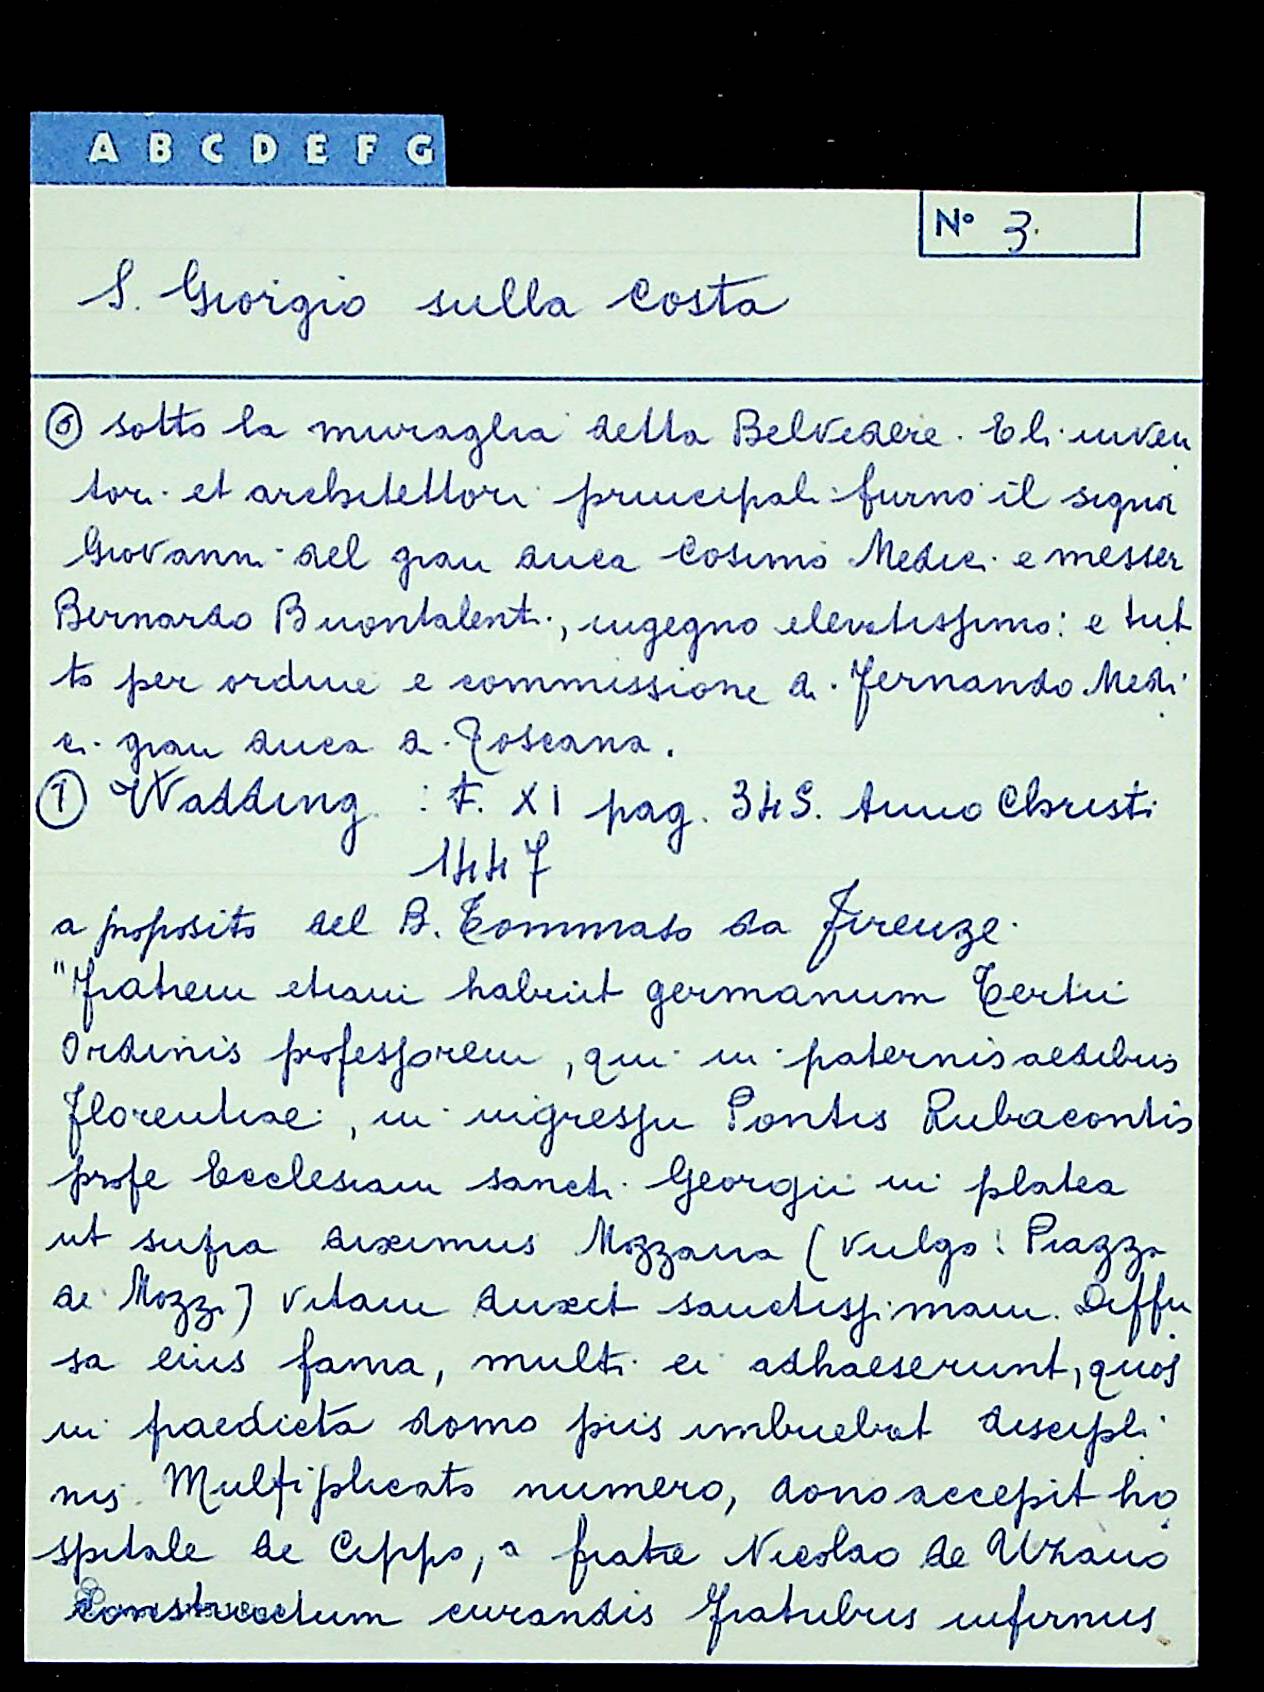 A B C D E F G
Nº 3.
S. Giorgio sulla Costa
⑥ sotto la muraglia detta Belvedere. Eli inven
tori et architettori principali furno il signor
Giovanni del gran duca Cosimo Medici e messer
Bernardo Buontalenti, ingegno elevatissimo: e tut
to per ordine e commissione di Fernando Medi
ci gran duca di Toscana.
① Wadding : T. XI pag. 345. Anno Christi
1447
a proposito del B. Tommaso da Firenze.
"Fratrem etiam habuit germanum Tertii
Ordinis professorem, qui in paternis aedibus
Florentiae, in ingressu Pontis Rubacontis
prope Ecclesiam sancti Georgii in platea
ut supra diximus Mozzana (vulgo: Piazza
de Mozzi) vitam duxit sanctissimam. Diffu
sa eius fama, multi ei adhaeserunt, quos
in praedicta domo piis imbuebat discipli
nis. Multiplicato numero, dono accepit ho
spitale de Ceppo, a fratre Nicolao de Uzano
constructum curandis Fratribus infirmis